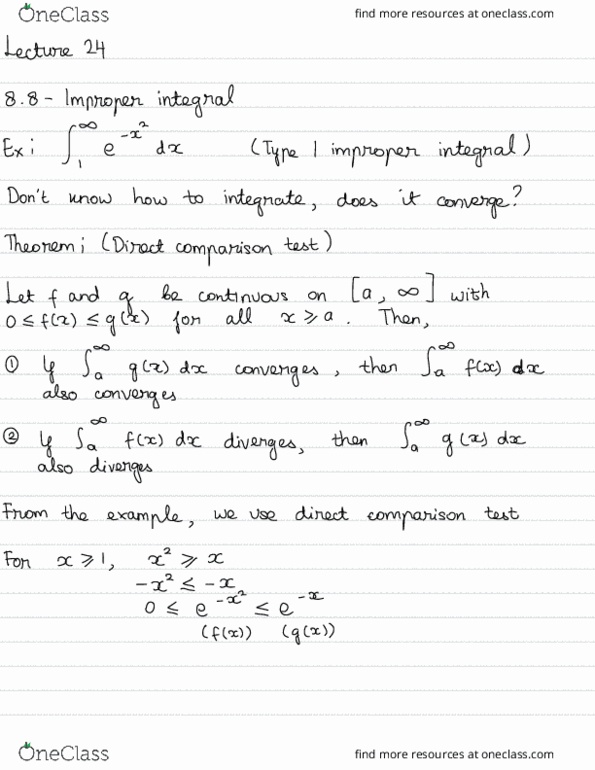 OneClass
find more resources at oneclass.com
Lecture 24
8.8 - Improper integral
Ex: ∫₁^∞ e^(-x²) dx (Type 1 improper integral)
Don't know how to integrate, does it converge?
Theorem: (Direct comparison test)
Let f and g be continuous on [a, ∞] with
0 ≤ f(x) ≤ g(x) for all x ≥ a. Then,
① If ∫ₐ^∞ g(x) dx converges, then ∫ₐ^∞ f(x) dx
also converges
② If ∫ₐ^∞ f(x) dx diverges, then ∫ₐ^∞ g(x) dx
also diverges
From the example, we use direct comparison test
For x ≥ 1, x² ≥ x
-x² ≤ -x
0 ≤ e^(-x²) ≤ e^(-x)
(f(x)) (g(x))
OneClass
find more resources at oneclass.com